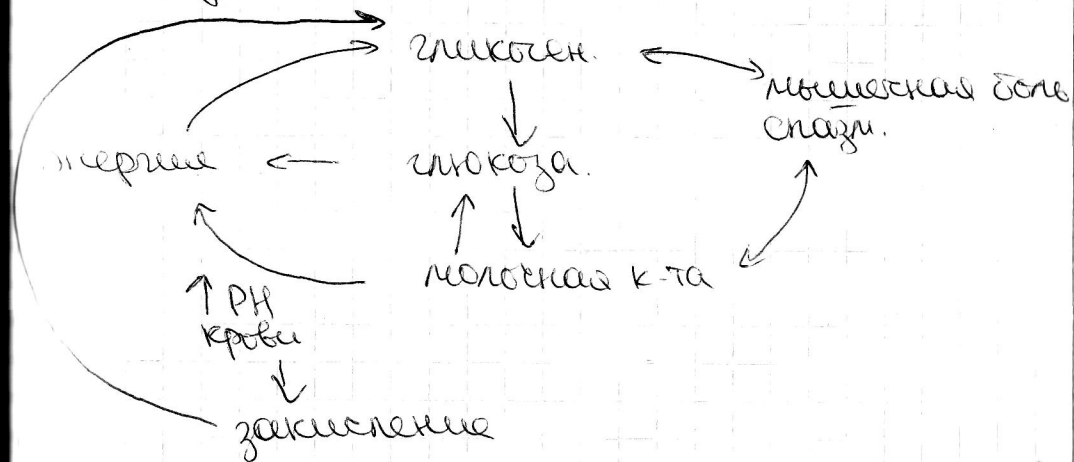 гликоген.
мышечная боль
спазм.
энергия
глюкоза.
молочная к-та
↑ PH
крови
закисление